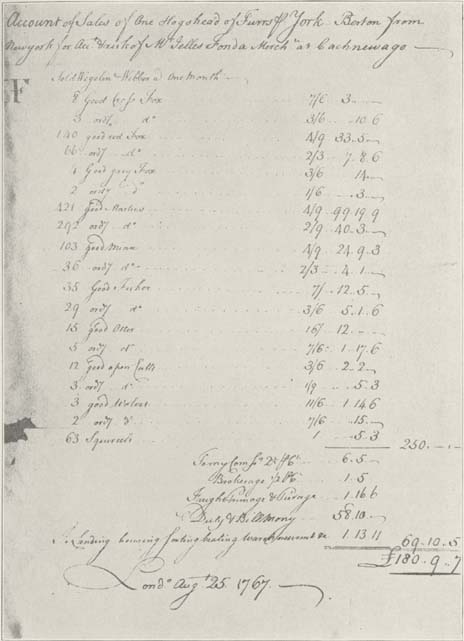 Account of Sales of One Hogshead of Furrs p York Berton from
New york for Acct & risk of Mr Jelles Fonda Mercht at Cachnewago
Sold Wigelin & Webber a One Month
8 Good Cross Fox 7/6 3 — —
3 ordy do 3/6 10 6
140 good red Fox 4/9 33 5 —
66 ordy do 2/3 7 8 6
4 Good grey Fox 3/6 14 —
2 ordy do 1/6 3 —
421 good Martins 4/9 99 19 9
292 ordy do 2/9 40 3 —
103 good Minx 4/9 24 9 3
36 ordy do 2/3 4 1 —
35 Good Fisher 7/ 12 5 —
29 ordy do 3/6 5 1 6
15 good Otter 16/ 12 — —
5 ordy do 7/6 1 17 6
12 good open Catts 3/6 2 2 —
3 ordy do 1/9 5 3
3 good Wolves 11/6 1 14 6
2 ordy do 7/6 15 —
63 Squirrels 1 5 3
250 — —
6 5 —
Brokerage 1 5
Freight Primage & 1 16 6
Duty & Bill Mony 58 10 —
Landing housing beating 1 13 11 69 10 5
£180 9 7
Londn Augt 25 1767